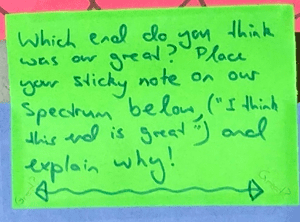 Which end do you think
was our great? Place
your sticky note on our
Spectrum below, ("I think
this end is great") and
explain why!